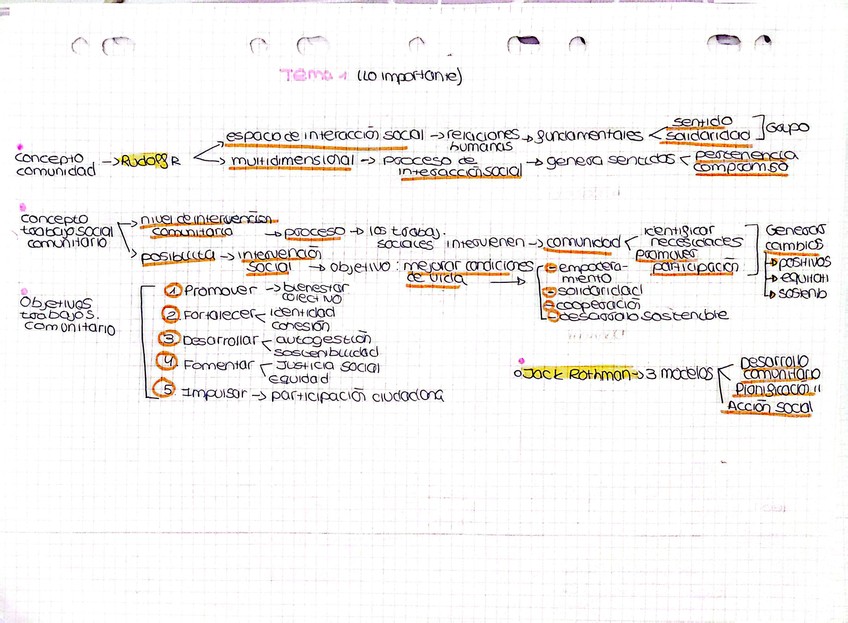 Tema 1 (Lo importante)
Concepto comunidad → Rudolf R
espacio de interacción social → relaciones humanas → fundamentales < sentido solidaridad ] Grupo
multidimensional → proceso de interacción social → genera sentidos < pertenencia compromiso
Concepto trabajo social comunitario
nivel de intervención comunitaria → proceso → los trabaj. sociales intervienen → comunidad < identificar necesidades promover participación ] Generar cambios
→ positivos
→ equitati
→ sostenib
posibilita → intervención social → objetivo: mejorar condiciones de vida →
- empoderamiento
- solidaridad
- cooperación
- desarrollo sostenible
Objetivos trabajo s. comunitario
1 Promover → bienestar colectivo
2 Fortalecer < identidad cohesión
3 Desarrollar < autogestión sostenibilidad
4 Fomentar < Justicia social equidad
5 Impulsar → participación ciudadana
o Jack Rothman → 3 modelos
Desarrollo comunitario
Planificación "
Acción social